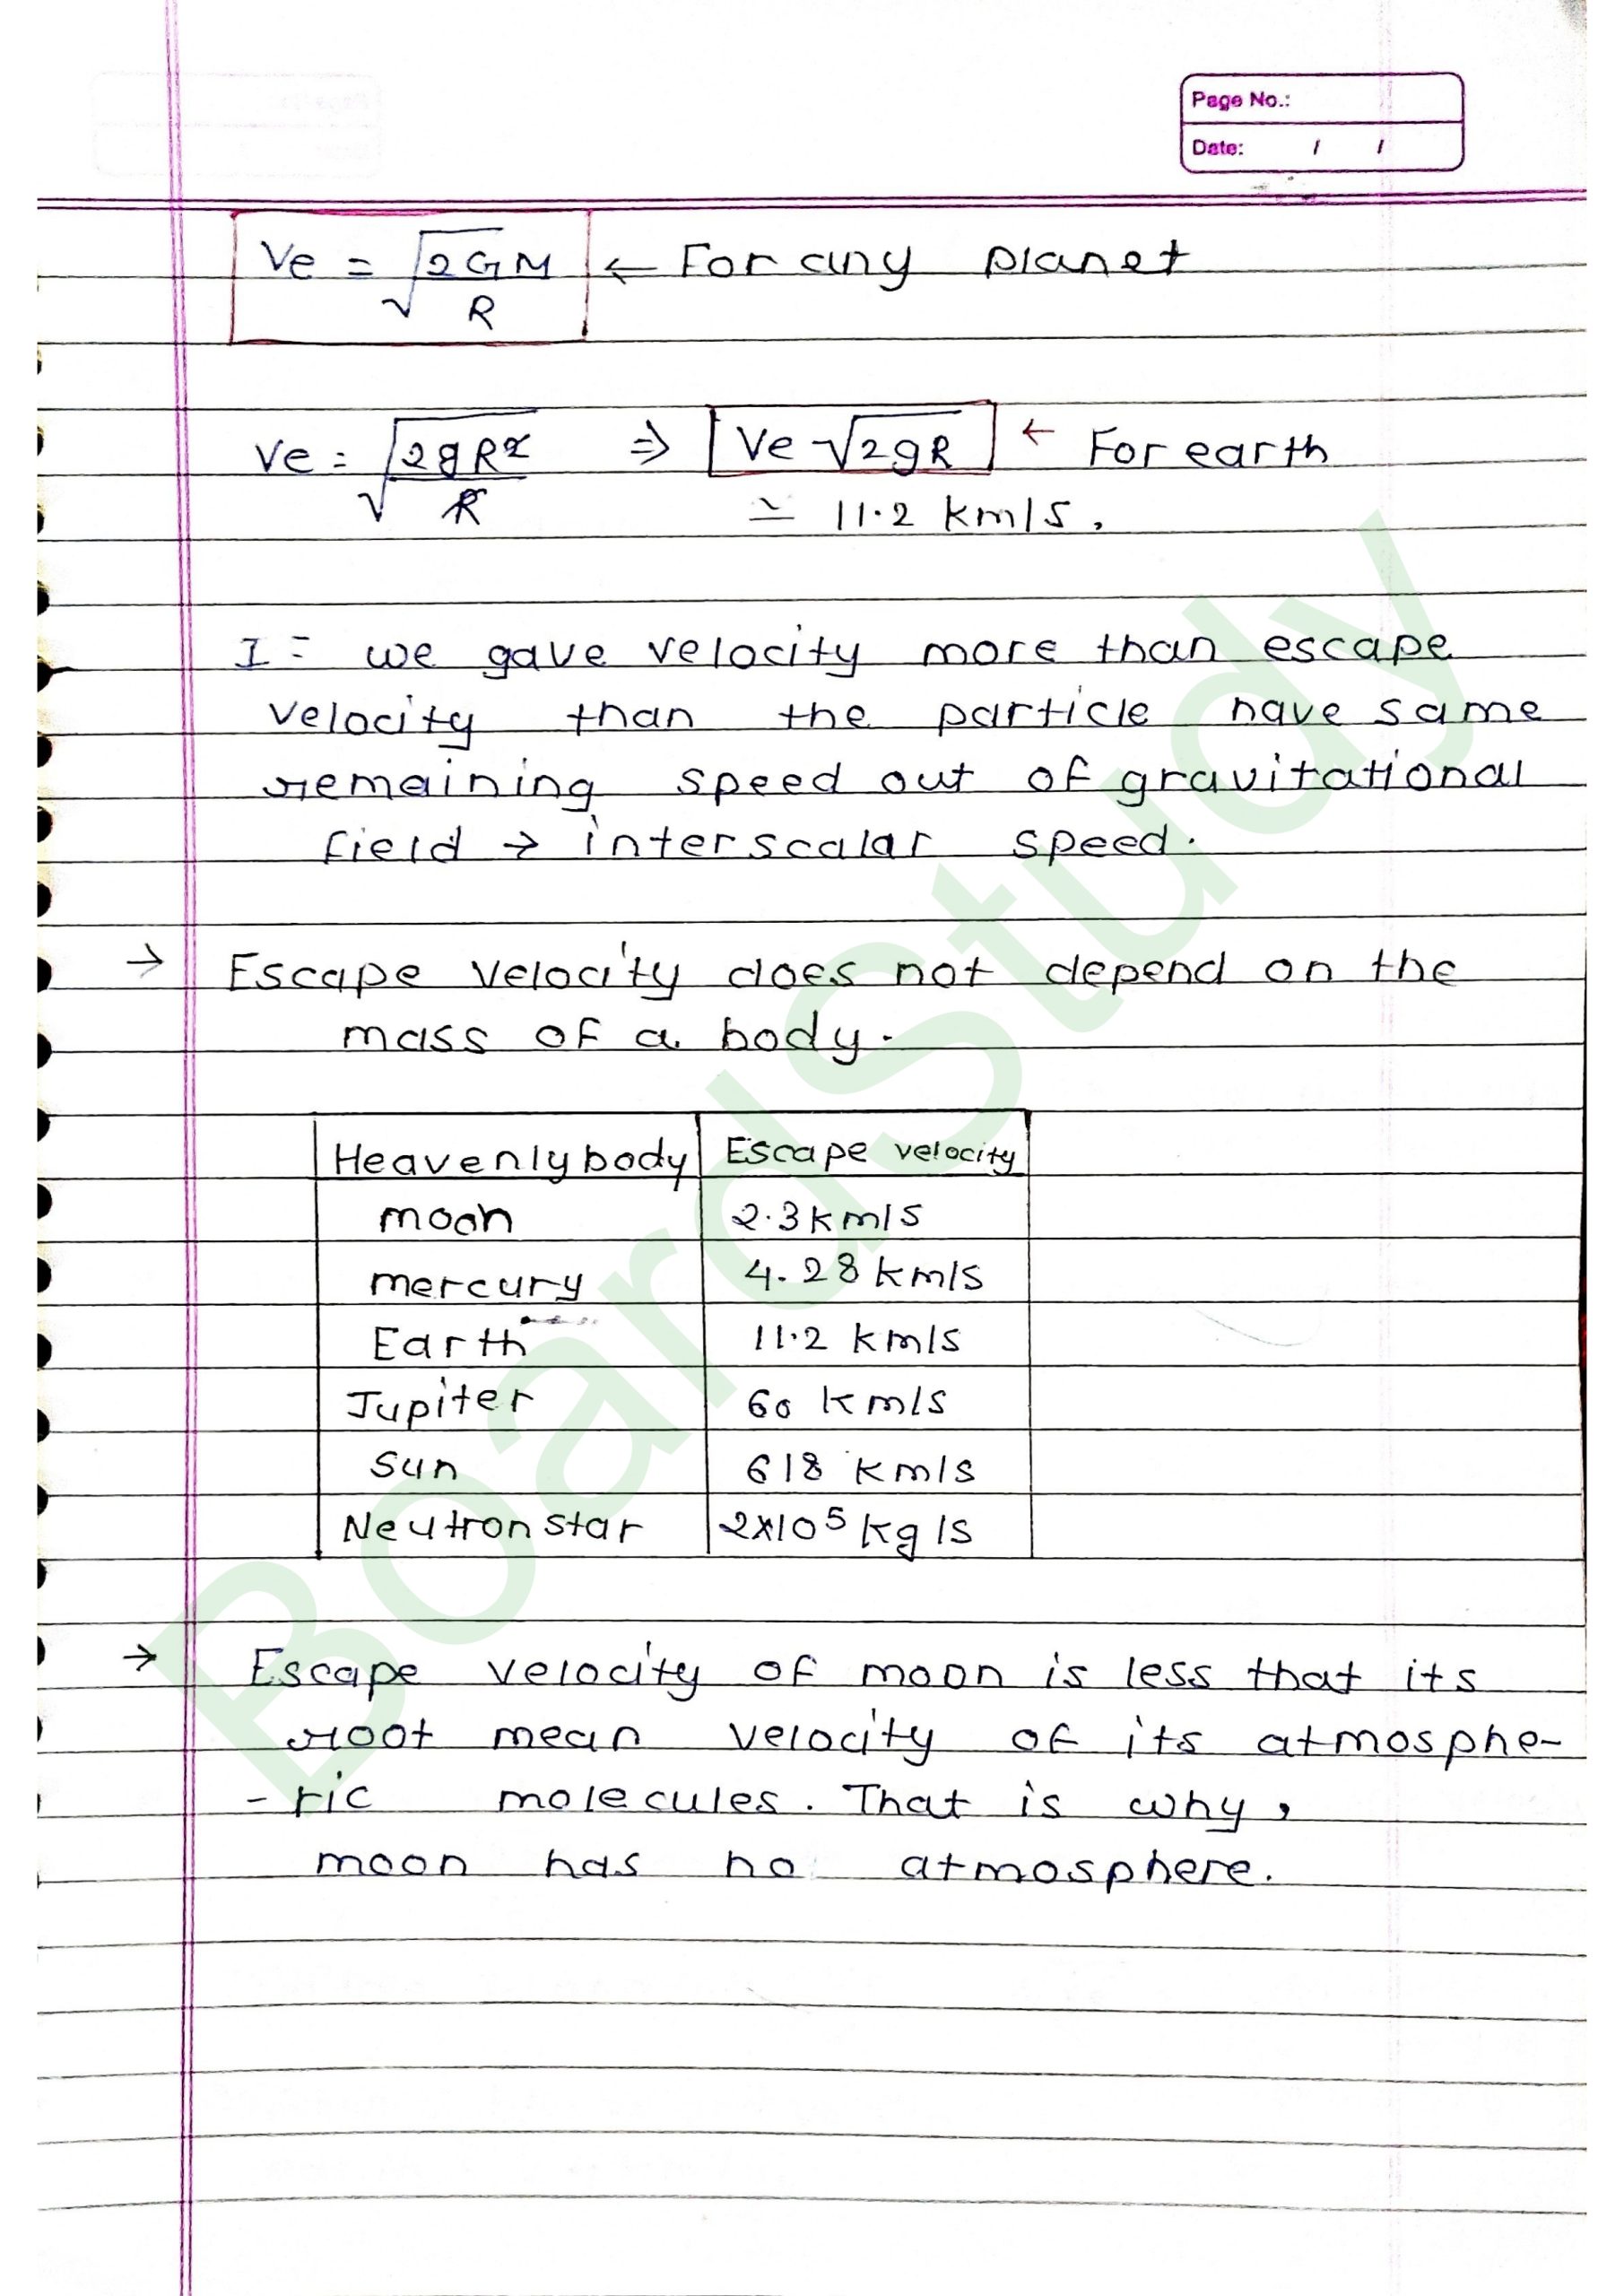 Page No.:
Date: / /
Ve = √2GM/R ← For any planet
Ve = √2gR²/R ⇒ Ve √2gR ← For earth
≃ 11.2 km/s.
I = we gave velocity more than escape
velocity than the particle have same
remaining speed out of gravitational
field → interscalar speed.
→ Escape velocity does not depend on the
mass of a body.
Heavenly body Escape velocity
moon 2.3 km/s
mercury 4.28 km/s
Earth 11.2 km/s
Jupiter 60 km/s
Sun 618 km/s
Neutron star 2×10⁵ kg/s
→ Escape velocity of moon is less that its
root mean velocity of its atmosphe-
-ric molecules. That is why,
moon has no atmosphere.
BoardStudy